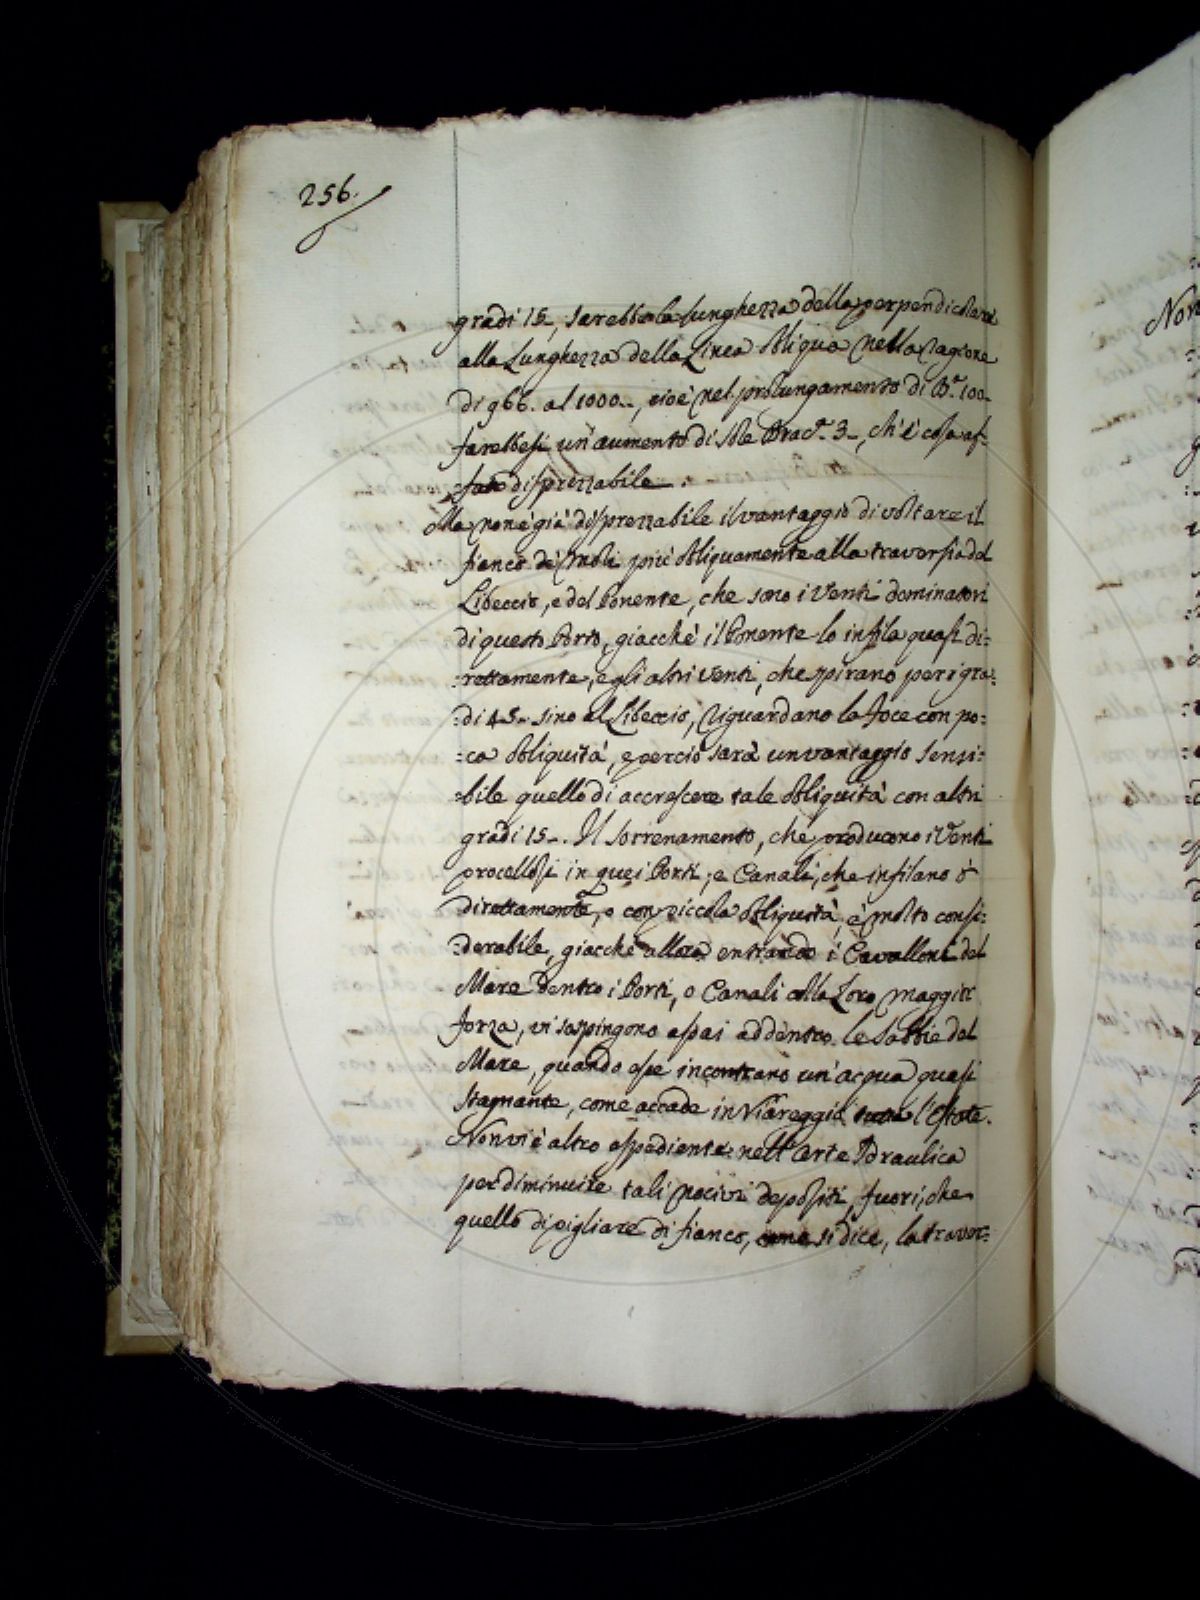 256.
gradi 15, sarebbe la lunghezza della perpendicolare
alla Lunghezza della Linea obliqua nella ragione
di 966. al 1000., cioè nel prolungamento di B.a 100.
farebbesi un'aumento di sole Brac.a 3., ch'è cosa af-
:fatto disprezzabile.
Ma non è già disprezzabile il vantaggio di voltare il
fianco de' Moli più obliquamente alla traversia del
Libeccio, e del Ponente, che sono i Venti dominatori
di questo Porto, giacchè il Ponente lo infila quasi di:
:rettamente, e gli altri Venti, che spirano per i gra:
:di 45. sino al Libeccio, riguardano la foce con po:
:ca obliquità, e perciò sarà un vantaggio sensi:
:bile quello di accrescere tale obliquità con altri
gradi 15.. Il Sorrenamento, che producono i Venti
procellosi in quei Porti, e Canali, che infilano ò
direttamente, o con piccola obliquità, è molto consi:
:derabile, giacchè allora entrando i Cavalloni del
Mare dentro i Porti, o Canali colla Loro maggior
forza, vi sospingono assai addentro le Sabbie del
Mare, quando esse incontrano un'acqua quasi
Stagnante, come accade in Viareggio tutta l'Estate.
Non vi è altro espediente nell'Arte Idraulica
per diminuire tali nocivi depositi, fuori, che
quello di pigliare di fianco, come si dice, la traver:
Non